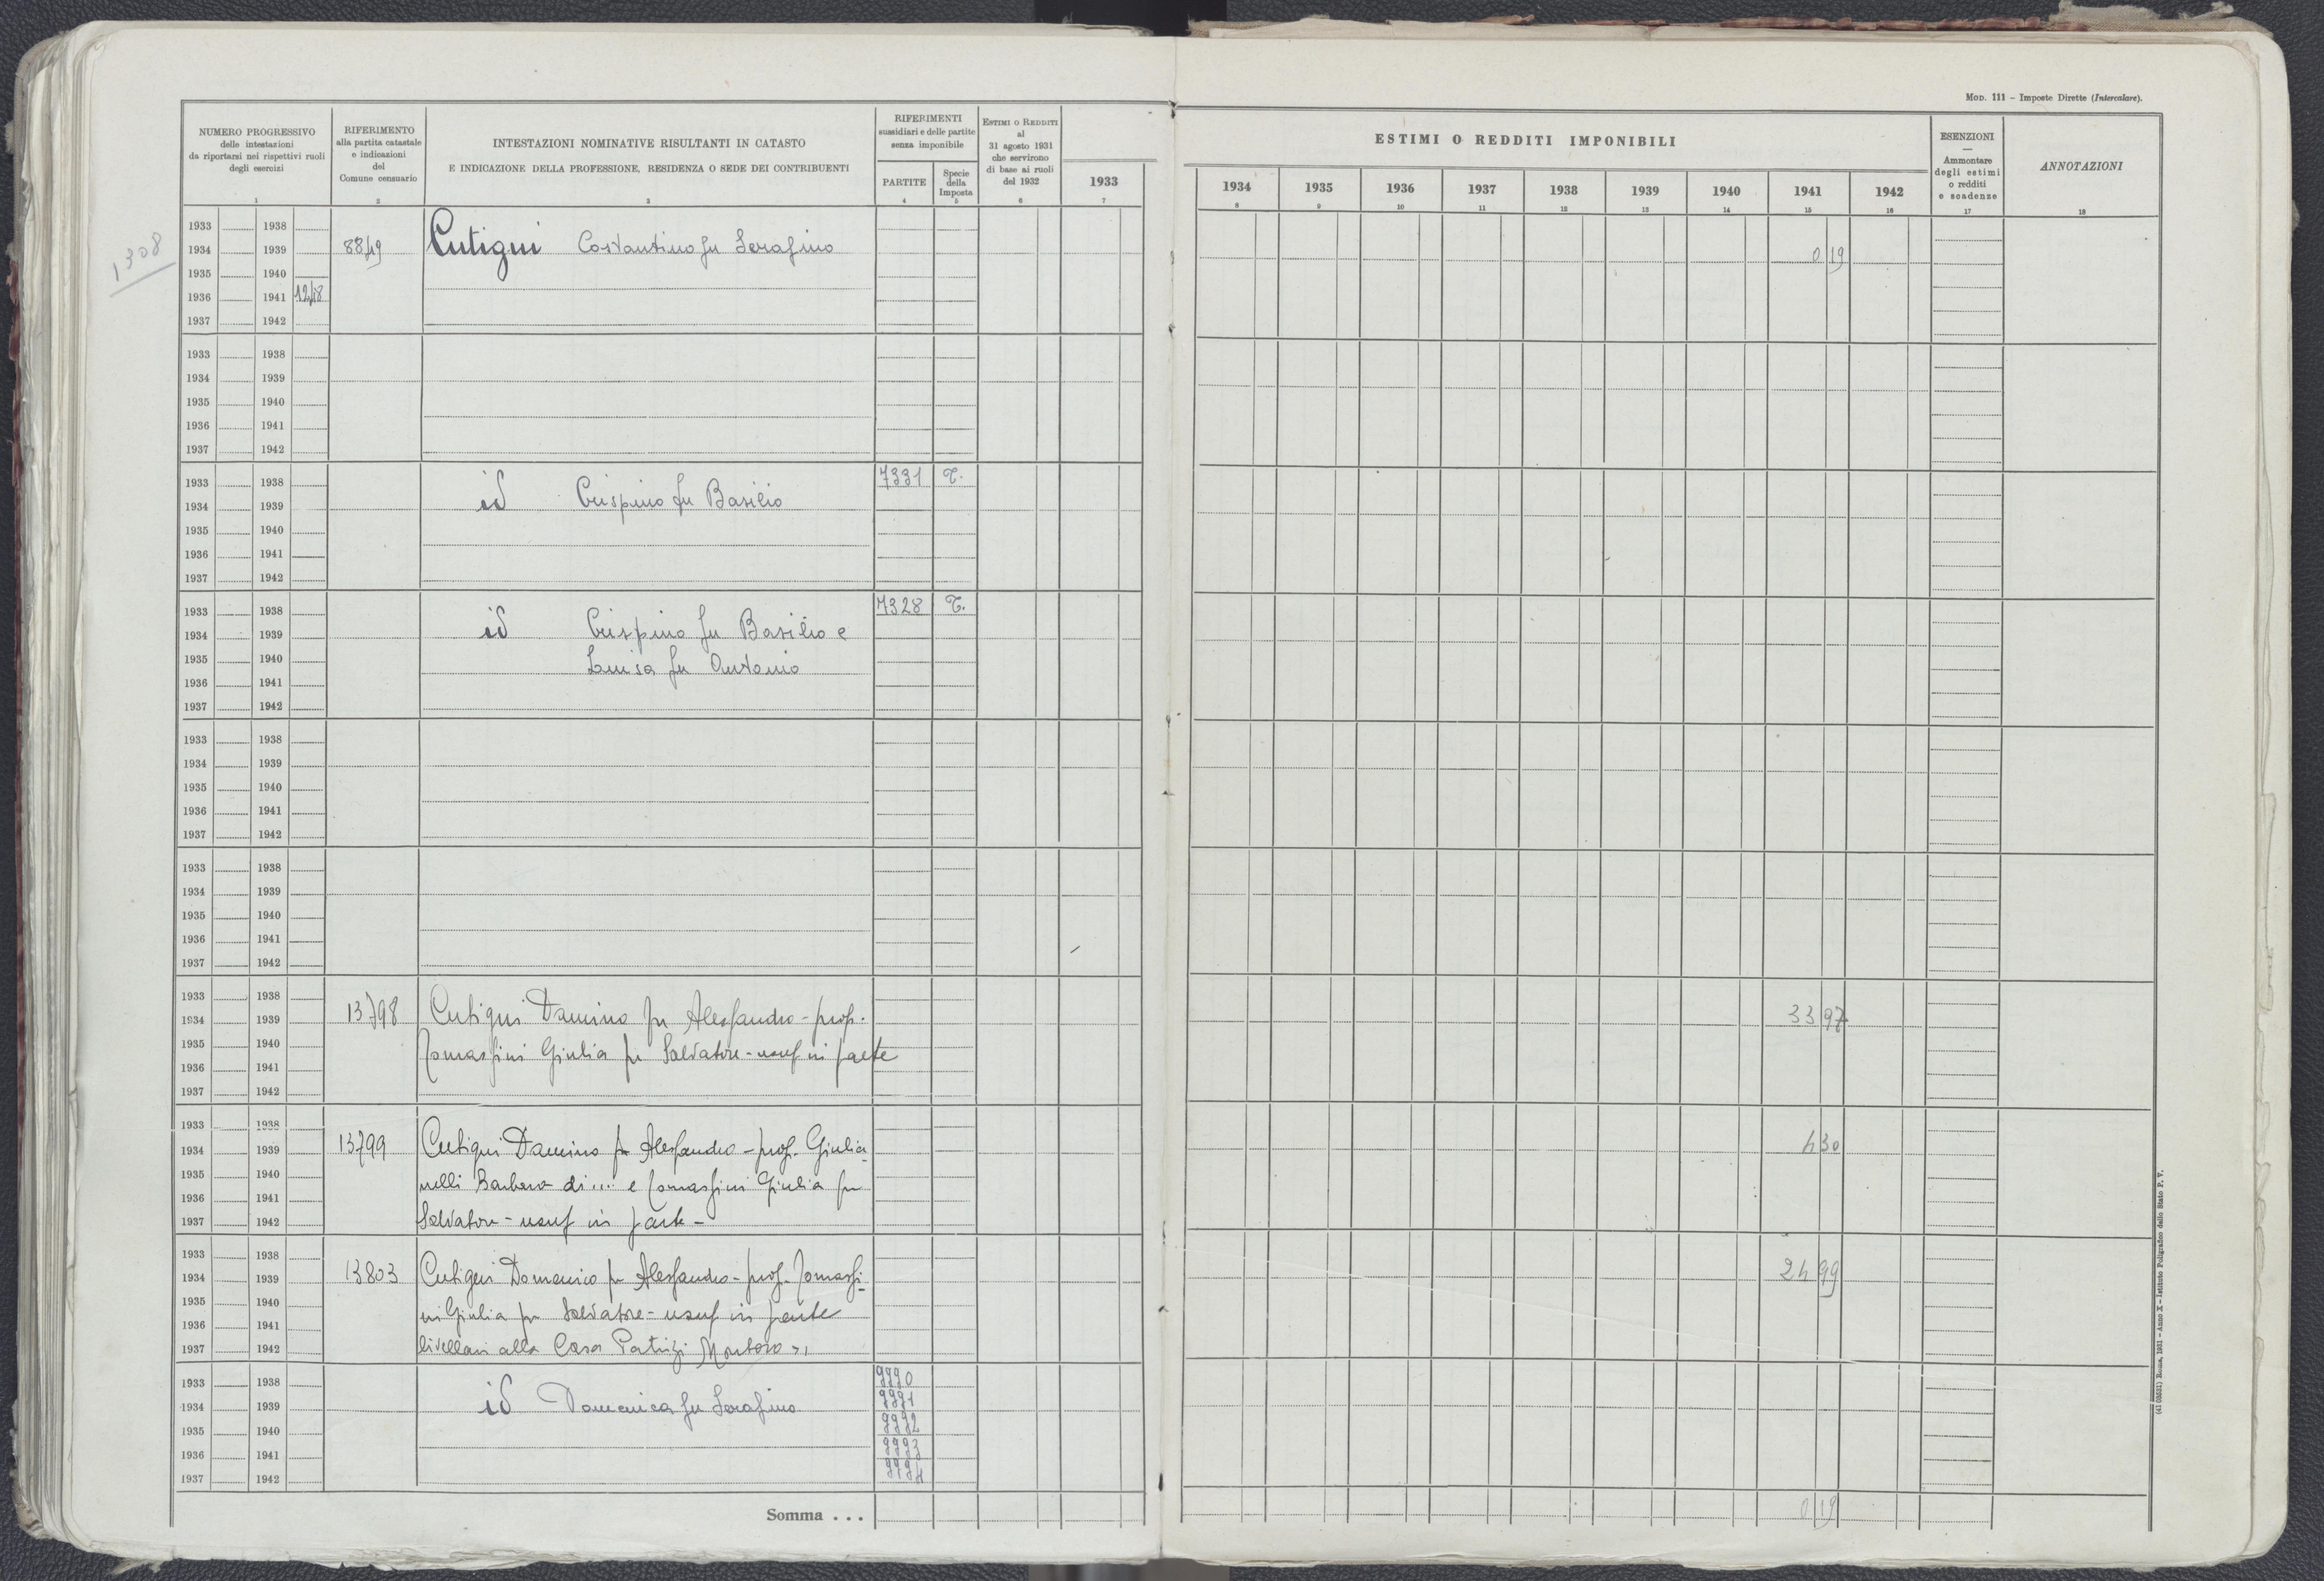 Mod. 111 – Imposte Dirette (Intercalare).
NUMERO PROGRESSIVO
delle intestazioni
da riportarsi nei rispettivi ruoli
degli esercizi
1
RIFERIMENTO
alla partita catastale
e indicazioni
del
Comune censuario
2
INTESTAZIONI NOMINATIVE RISULTANTI IN CATASTO
E INDICAZIONE DELLA PROFESSIONE, RESIDENZA O SEDE DEI CONTRIBUENTI
3
RIFERIMENTI
sussidiari e delle partite
senza imponibile
PARTITE
4
Specie
della
Imposta
5
Estimi o Redditi
al
31 agosto 1931
che servirono
di base ai ruoli
del 1932
6
1933
7
ESTIMI O REDDITI IMPONIBILI
1934 1935 1936 1937 1938 1939 1940 1941 1942
8 9 10 11 12 13 14 15 16
ESENZIONI
—
Ammontare
degli estimi
o redditi
e scadenze
17
ANNOTAZIONI
18
1308
1933 1938
1934 1939 8849 Cutigni Costantino fu Serafino 0 19
1935 1940
1936 1941 1218
1937 1942
1933 1938
1934 1939
1935 1940
1936 1941
1937 1942
1933 1938 7331 T.
1934 1939 id Crispino fu Basilio
1935 1940
1936 1941
1937 1942
1933 1938 7328 T.
1934 1939 id Crispino fu Basilio e
1935 1940 Luisa fu Antonio
1936 1941
1937 1942
1933 1938
1934 1939
1935 1940
1936 1941
1937 1942
1933 1938
1934 1939
1935 1940
1936 1941
1937 1942
1933 1938
1934 1939 13798 Cutigni Damino fu Alessandro – prop. 33 97
1935 1940 Tomassini Giulia fu Salvatore – usuf in parte
1936 1941
1937 1942
1933 1938
1934 1939 13799 Cutigni Damino fu Alessandro – prop. Giulia 4 30
1935 1940
1936 1941 nelli Barbara di .... e Tomassini Giulia fu
1937 1942 Salvatore – usuf in parte –
1933 1938
1934 1939 13803 Cutigni Domenico fu Alessandro – prop. Tomassi- 24 99
1935 1940
1936 1941 ni Giulia fu Salvatore – usuf in parte
1937 1942 livellari alla Casa Patrizi Montoro
1933 1938 9990
1934 1939 id Domenica fu Serafino 9991
1935 1940 9992
1936 1941 9993
1937 1942
Somma . . . 0 19
(4105531) Roma, 1931 – Anno X – Istituto Poligrafico dello Stato P. V.